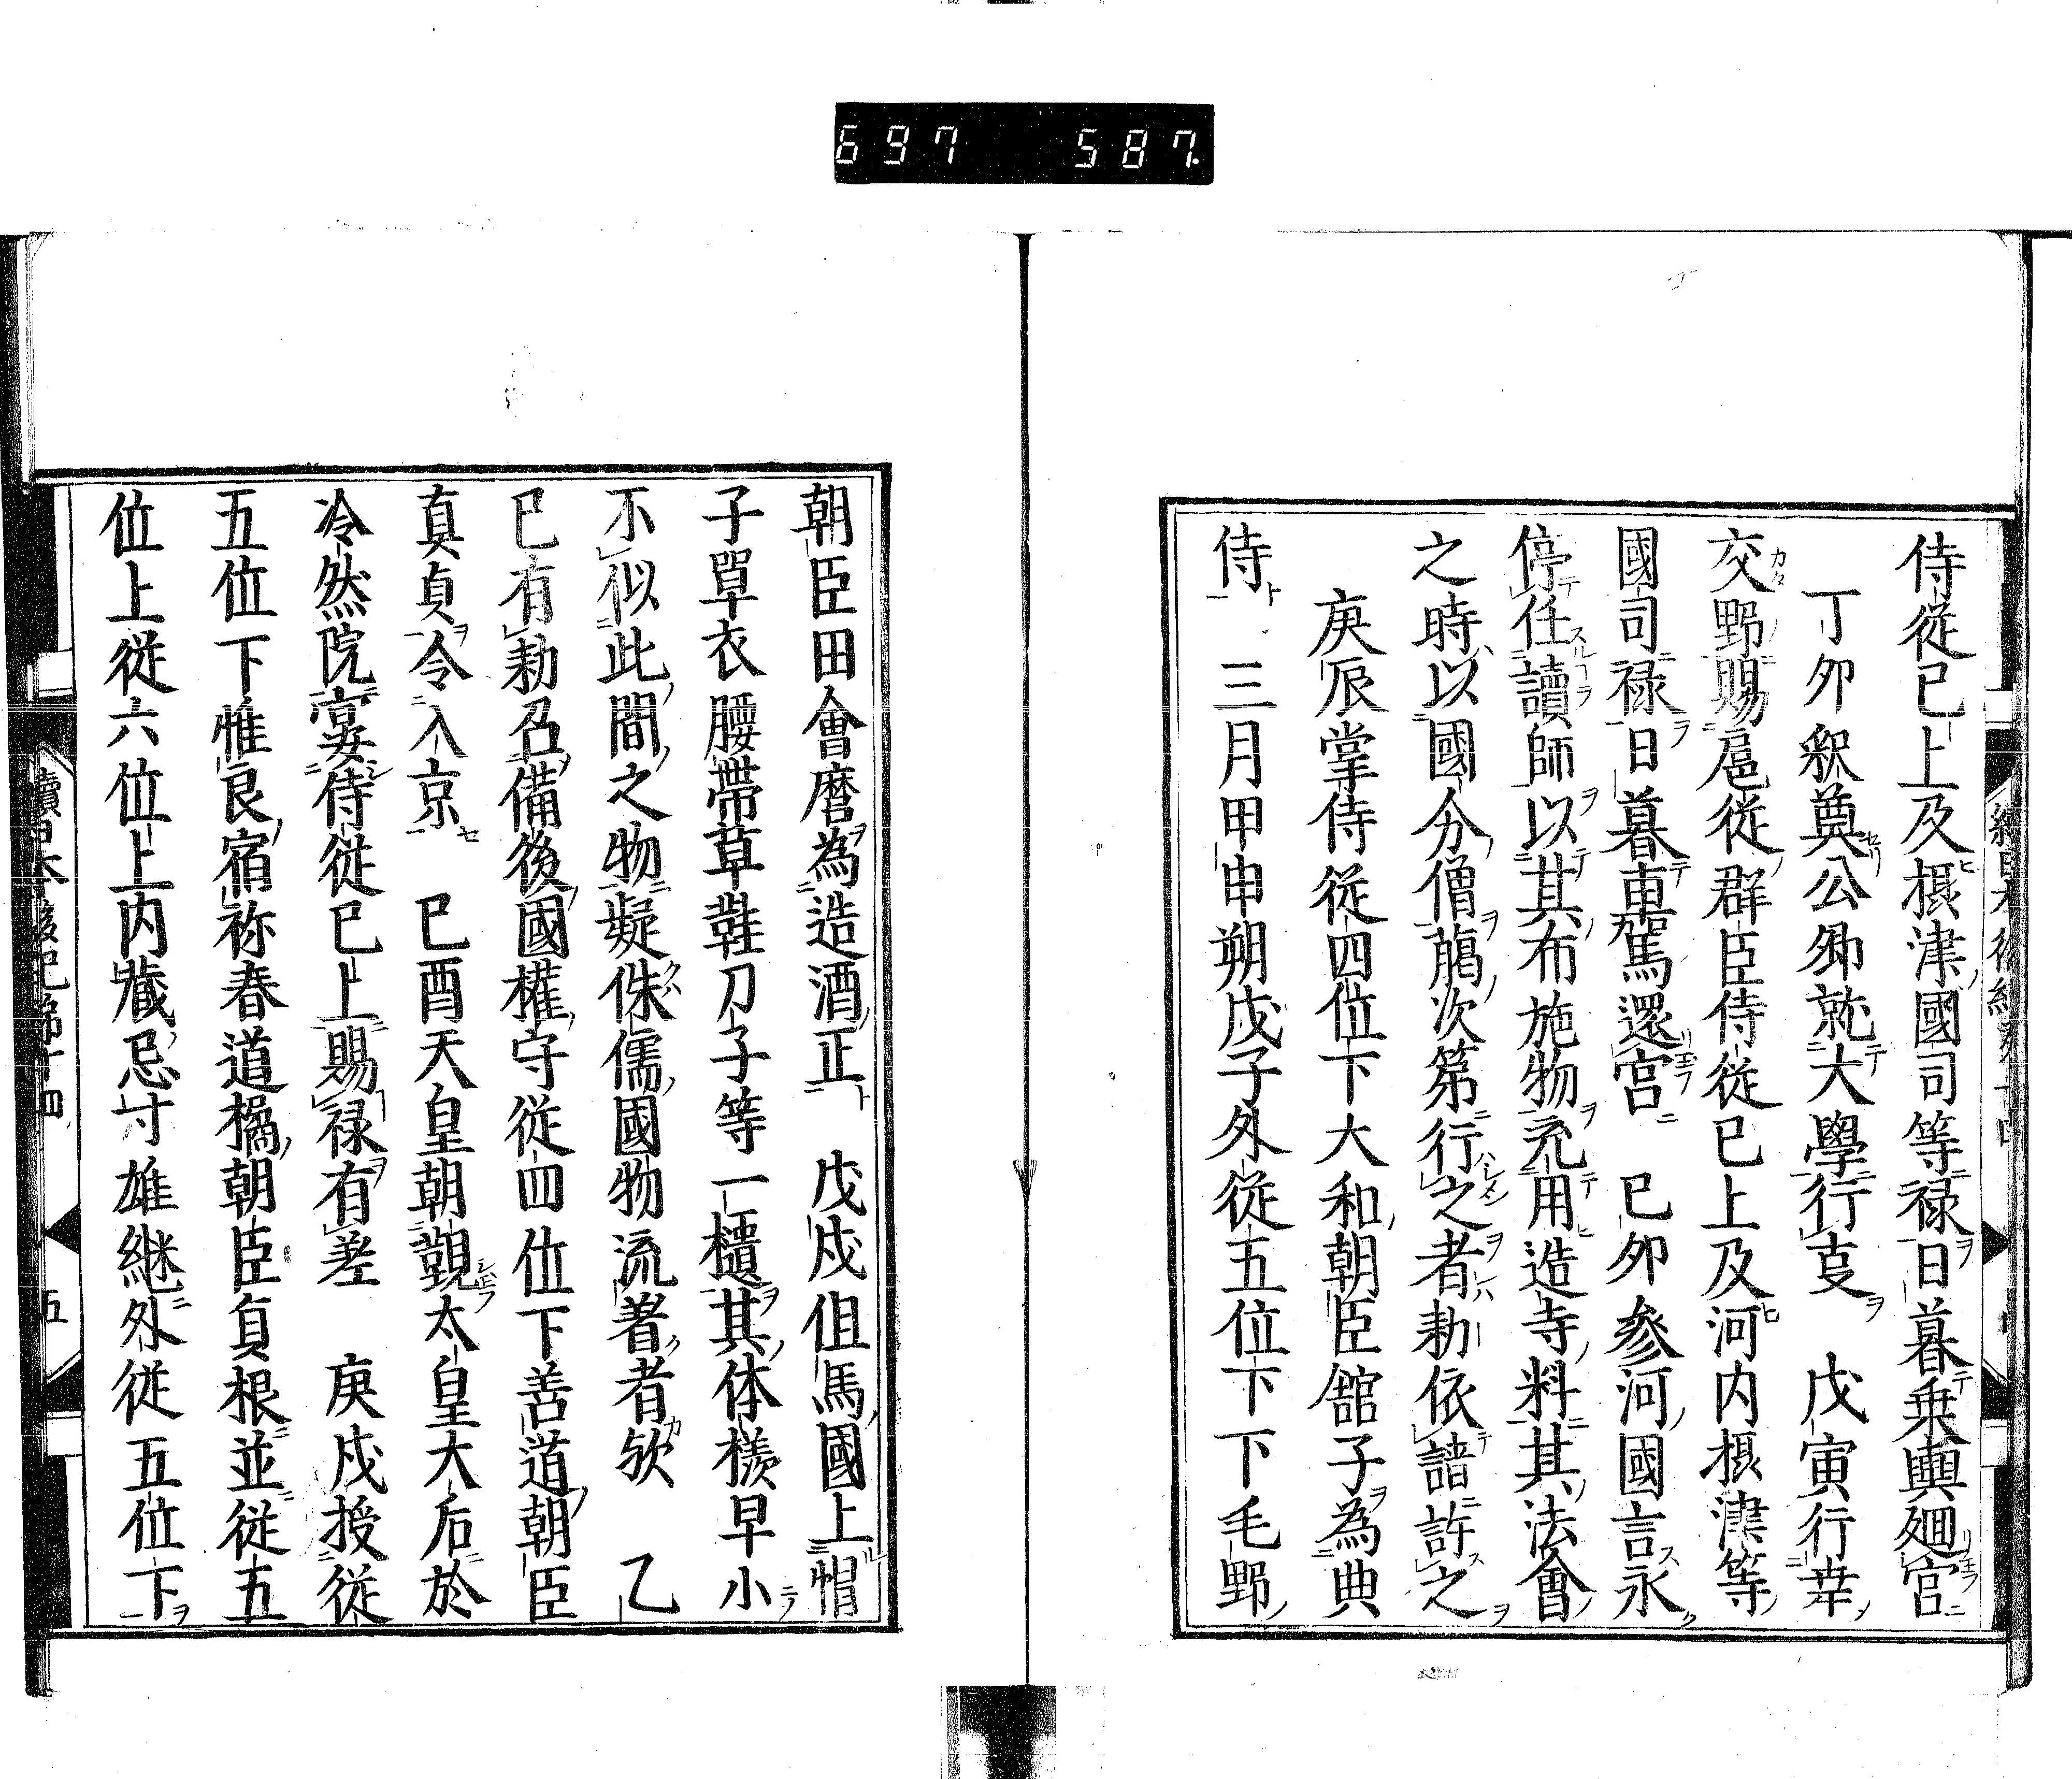 697 587
侍從已上及摂津國司等禄日暮乗輿廻宮
丁夘釈奠公卿就大學行支 戊寅行幸
交野賜扈從群臣侍從已上及河内摂津等
國司禄日暮車駕還宮 已夘参河國言永
停任讀師以其布施物充用造寺料其法會
之時以國分僧﨟次第行之者勅依請許之
庚辰掌侍從四位下大和朝臣舘子為典
侍 三月甲申朔戊子外從五位下下毛野
朝臣田會麿為造酒正 戊戌但馬國上帽
子單衣腰帶草鞋刀子等一櫃其体樣早小
不似此間之物疑侏儒國物流著者欤 乙
巳有勅召備後國權守從四位下善道朝臣
真貞令入京 已酉天皇朝覲太皇大后於
冷然院宴侍從已上賜禄有差 庚戌授從
五位下惟良宿祢春道檎朝臣負根並從五
位上從六位上内藏忌寸雄継外從五位下
續日本後紀第十四 五